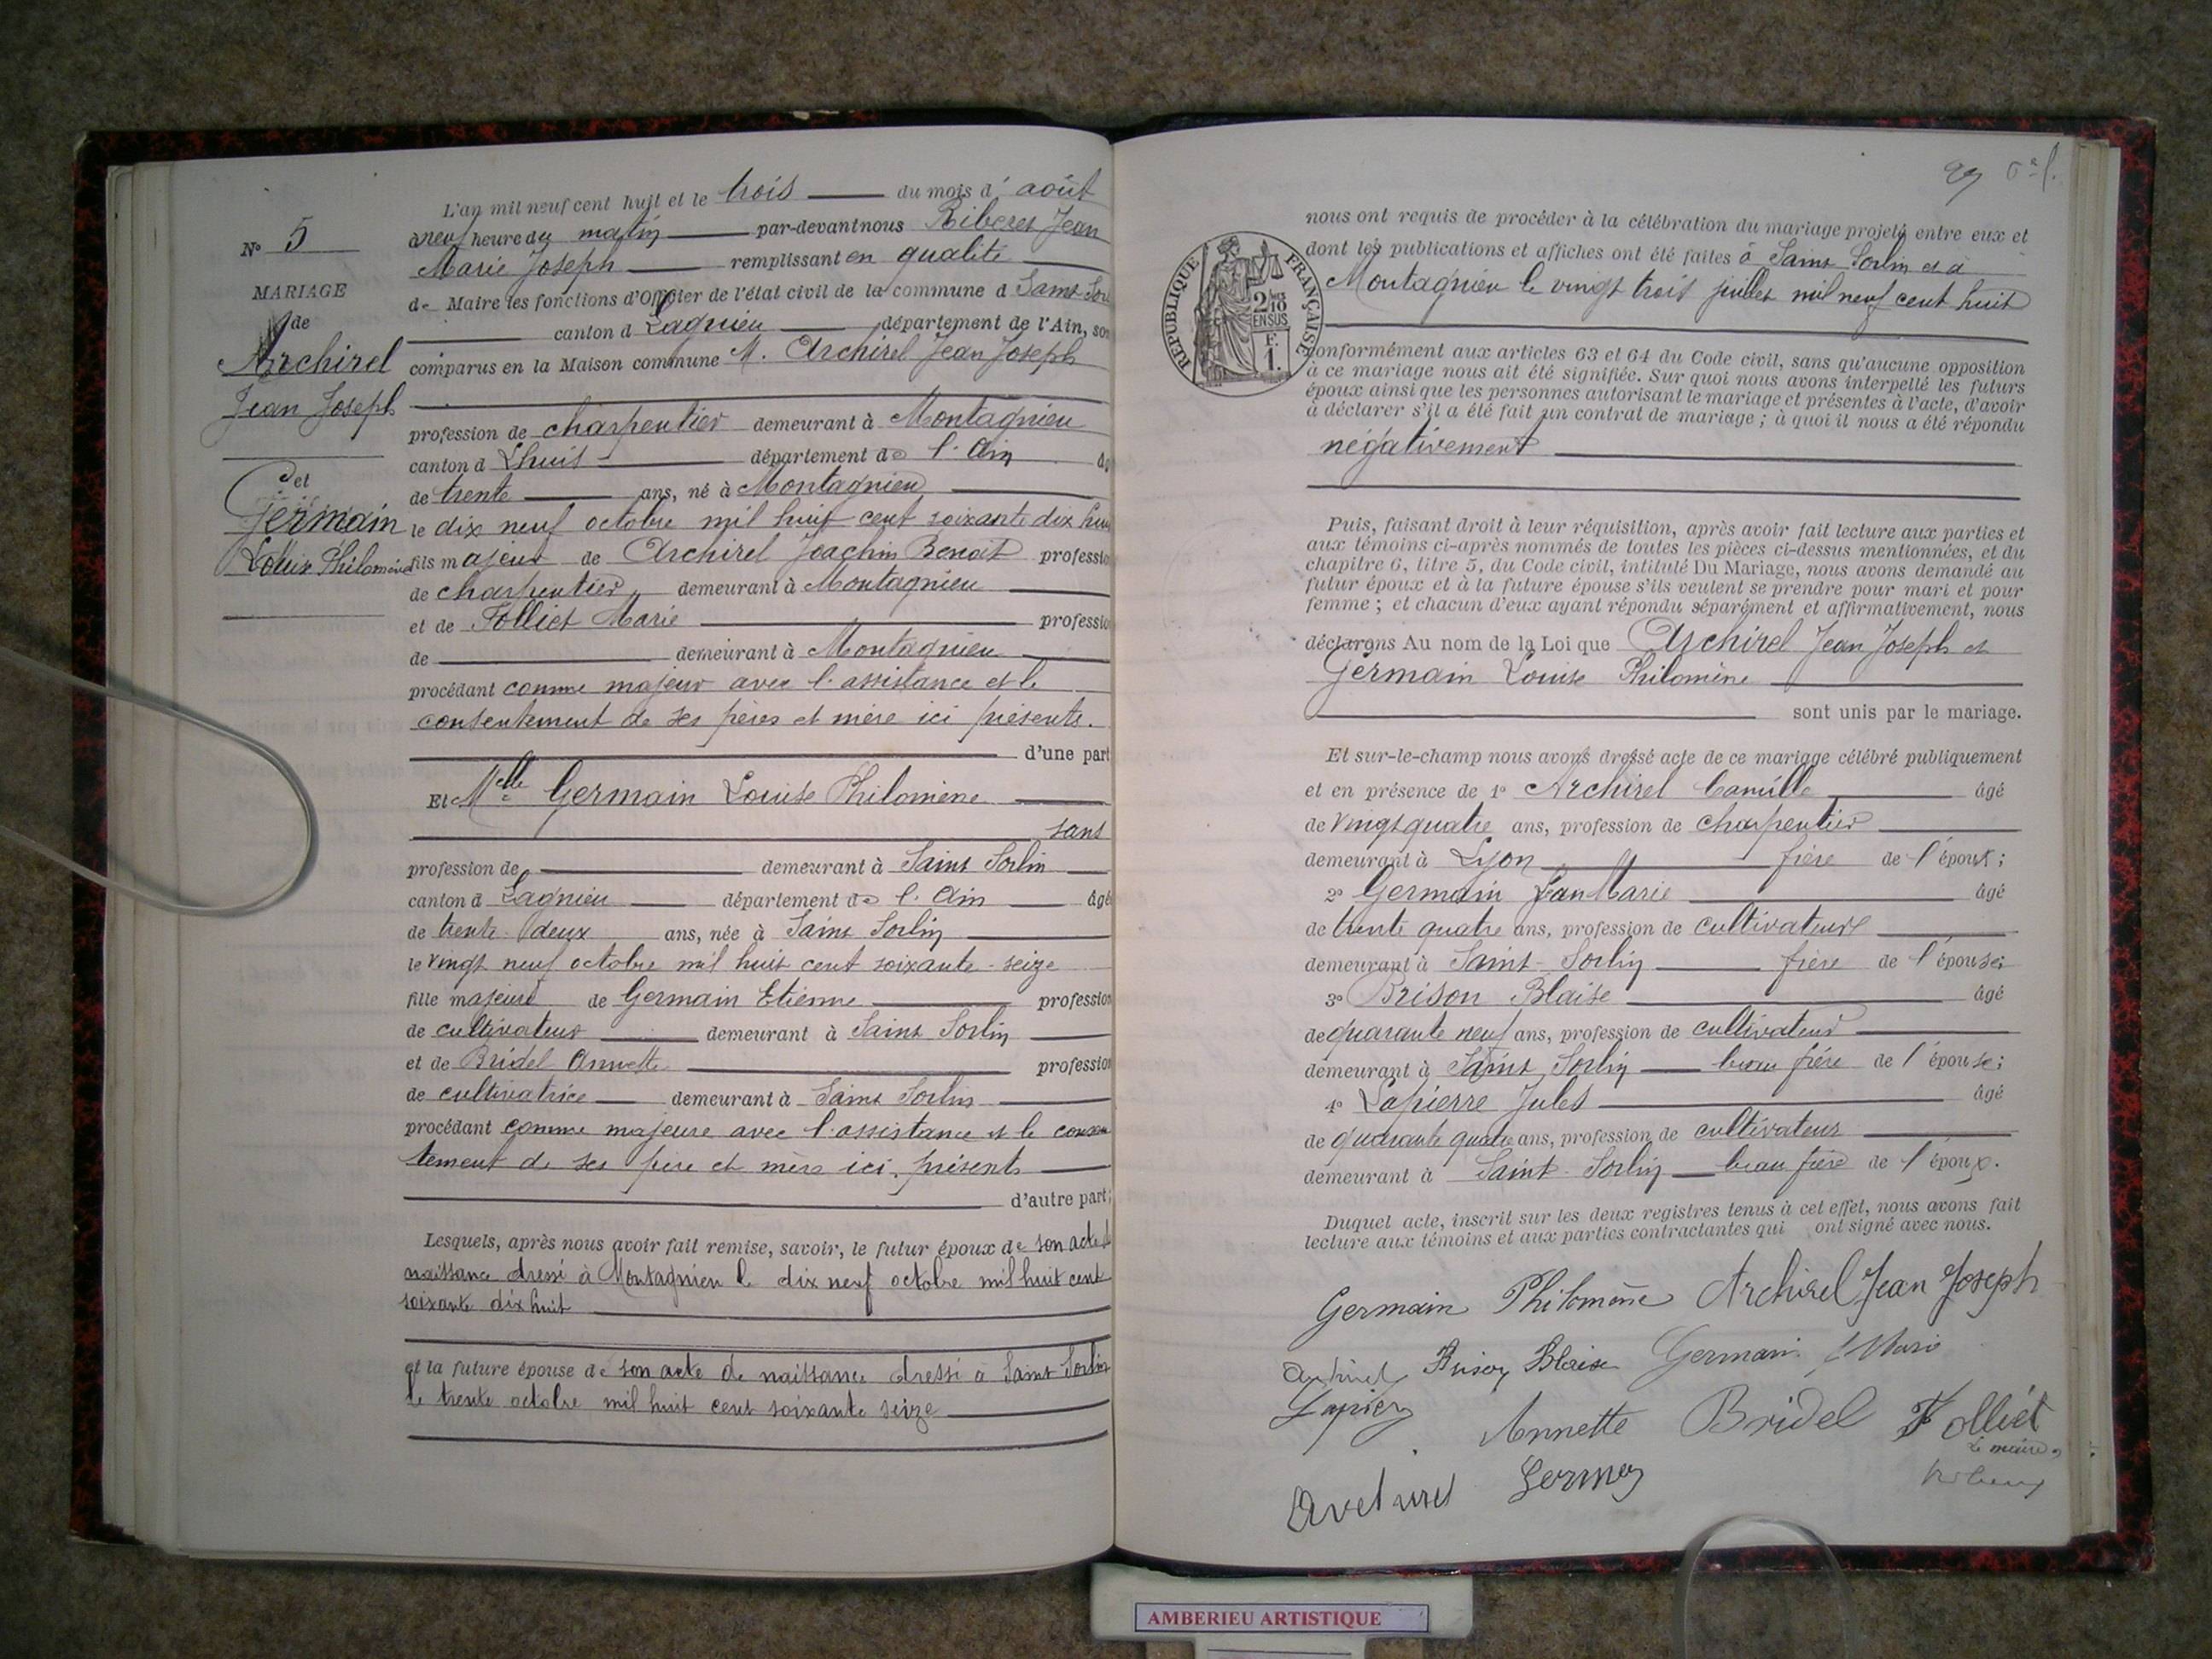 L'an mil neuf cent huit et le trois du mois d' août
à neuf heure du matin par-devant nous Riberet Jean
Marie Joseph remplissant en qualité
de Maire les fonctions d'Officier de l'état civil de la commune d Saint Sor
canton d Lagnieu département de l'Ain, son
comparus en la Maison commune M. Archirel Jean Joseph
profession de charpentier demeurant à Montagnieu
canton d Lhuis département de l'Ain âg
de trente ans, né à Montagnieu
le dix neuf octobre mil huit cent soixante dix hui
fils majeur de Archirel Joachim Benoit professio
de charpentier demeurant à Montagnieu
et de Folliet Marie professio
de demeurant à Montagnieu
procédant comme majeur avec l'assistance et le
consentement de ses pères et mère ici présents.
d'une part
Et Melle Germain Louise Philomène
sans
profession de demeurant à Saint Sorlin
canton d Lagnieu département de l'Ain âgé
de trente deux ans, née à Saint Sorlin
le vingt neuf octobre mil huit cent soixante-seize
fille majeure de Germain Etienne profession
de cultivateur demeurant à Saint Sorlin
et de Bridel Annette profession
de cultivatrice demeurant à Saint Sorlin
procédant comme majeure avec l'assistance et le consen
tement de ses père et mère ici présents
d'autre part;
Lesquels, après nous avoir fait remise, savoir, le futur époux de son acte d
naissance dressé à Montagnieu le dix neuf octobre mil huit cent
soixante dix huit
et la future épouse de son acte de naissance dressé à Saint Sorlin
le trente octobre mil huit cent soixante seize
N° 5
MARIAGE
de
Archirel
Jean Joseph
et
Germain
Louise Philomène
29
nous ont requis de procéder à la célébration du mariage projeté entre eux et
dont les publications et affiches ont été faites à Saint Sorlin et à
Montagnieu le vingt trois juillet mil neuf cent huit
RÉPUBLIQUE FRANÇAISE
2/10
EN SUS
F.
1.
conformément aux articles 63 et 64 du Code civil, sans qu'aucune opposition
à ce mariage nous ait été signifiée. Sur quoi nous avons interpellé les futurs
époux ainsi que les personnes autorisant le mariage et présentes à l'acte, d'avoir
à déclarer s'il a été fait un contrat de mariage ; à quoi il nous a été répondu
négativement
Puis, faisant droit à leur réquisition, après avoir fait lecture aux parties et
aux témoins ci-après nommés de toutes les pièces ci-dessus mentionnées, et du
chapitre 6, titre 5, du Code civil, intitulé Du Mariage, nous avons demandé au
futur époux et à la future épouse s'ils veulent se prendre pour mari et pour
femme ; et chacun d'eux ayant répondu séparément et affirmativement, nous
déclarons Au nom de la Loi que Archirel Jean Joseph et
Germain Louise Philomène
sont unis par le mariage.
Et sur-le-champ nous avons dressé acte de ce mariage célébré publiquement
et en présence de 1° Archirel Camille âgé
de vingt quatre ans, profession de charpentier
demeurant à Lyon frère de l'époux ;
2° Germain Jean Marie âgé
de trente quatre ans, profession de cultivateur
demeurant à Saint-Sorlin frère de l'épouse;
3° Brison Blaise âgé
de quarante neuf ans, profession de cultivateur
demeurant à Saint Sorlin beau frère de l'épouse;
4° Lapierre Jules âgé
de quarante quatre ans, profession de cultivateur
demeurant à Saint-Sorlin beau frère de l'époux.
Duquel acte, inscrit sur les deux registres tenus à cet effet, nous avons fait
lecture aux témoins et aux parties contractantes qui ont signé avec nous.
Germain Philomène Archirel Jean Joseph
Brison Blaise Germain J Marie
Annette Bridel Folliet
Le maire
AMBERIEU ARTISTIQUE